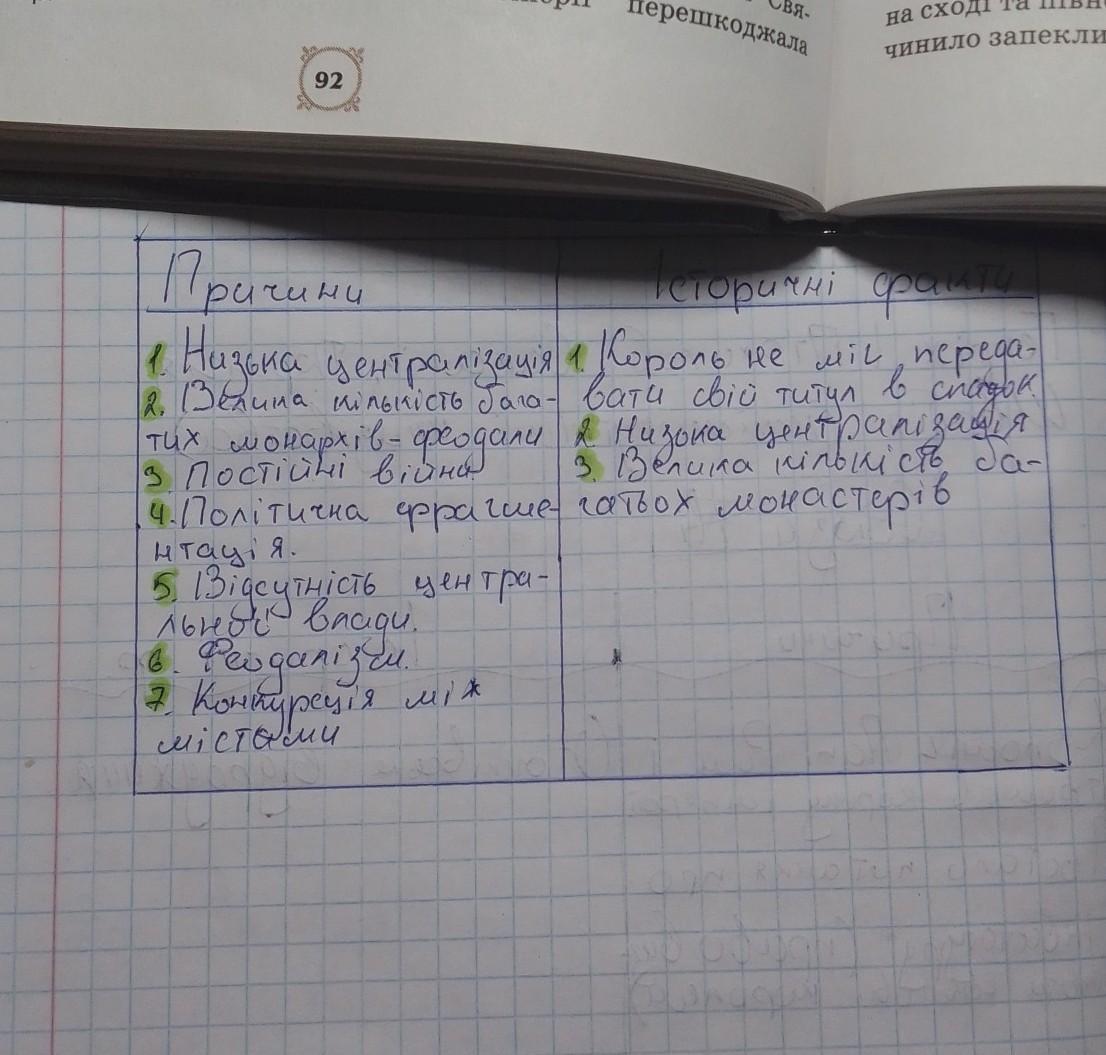 Свя-
перешкоджала
на сході та півн
чинило запекли
92
Причини
Історичні факти
1. Низька централізація
2. Велика кількість бага-
тих монархів-феодали
3 Постійні війна
4. Політична фрагме-
нтація.
5. Відсутність центра-
льної влади.
6. Феодалізм.
7. Конкуреція між
містами
1. Король не міг переда-
вати свій титул в спадок.
2 Низька централізація
3. Велика кількість ба-
гатьох монастерів